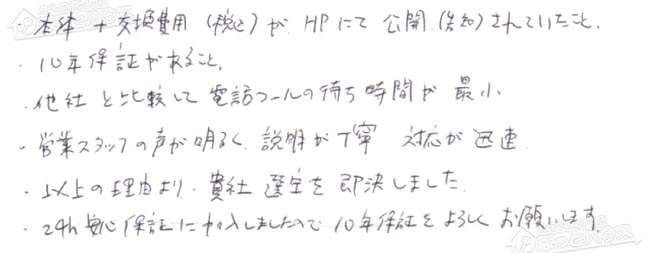 ・本体 + 交換費用 (税込) が HPにて 公開 (告知) されていたこと.
・10年保証があること.
・他社と比較して 電話コールの待ち時間が 最小
・営業スタッフの声が明るく. 説明が丁寧 対応が迅速
・以上の理由より. 貴社 選定を 即決しました.
・24h 安心保証に加入しましたので 10年保証を よろしく お願いします.